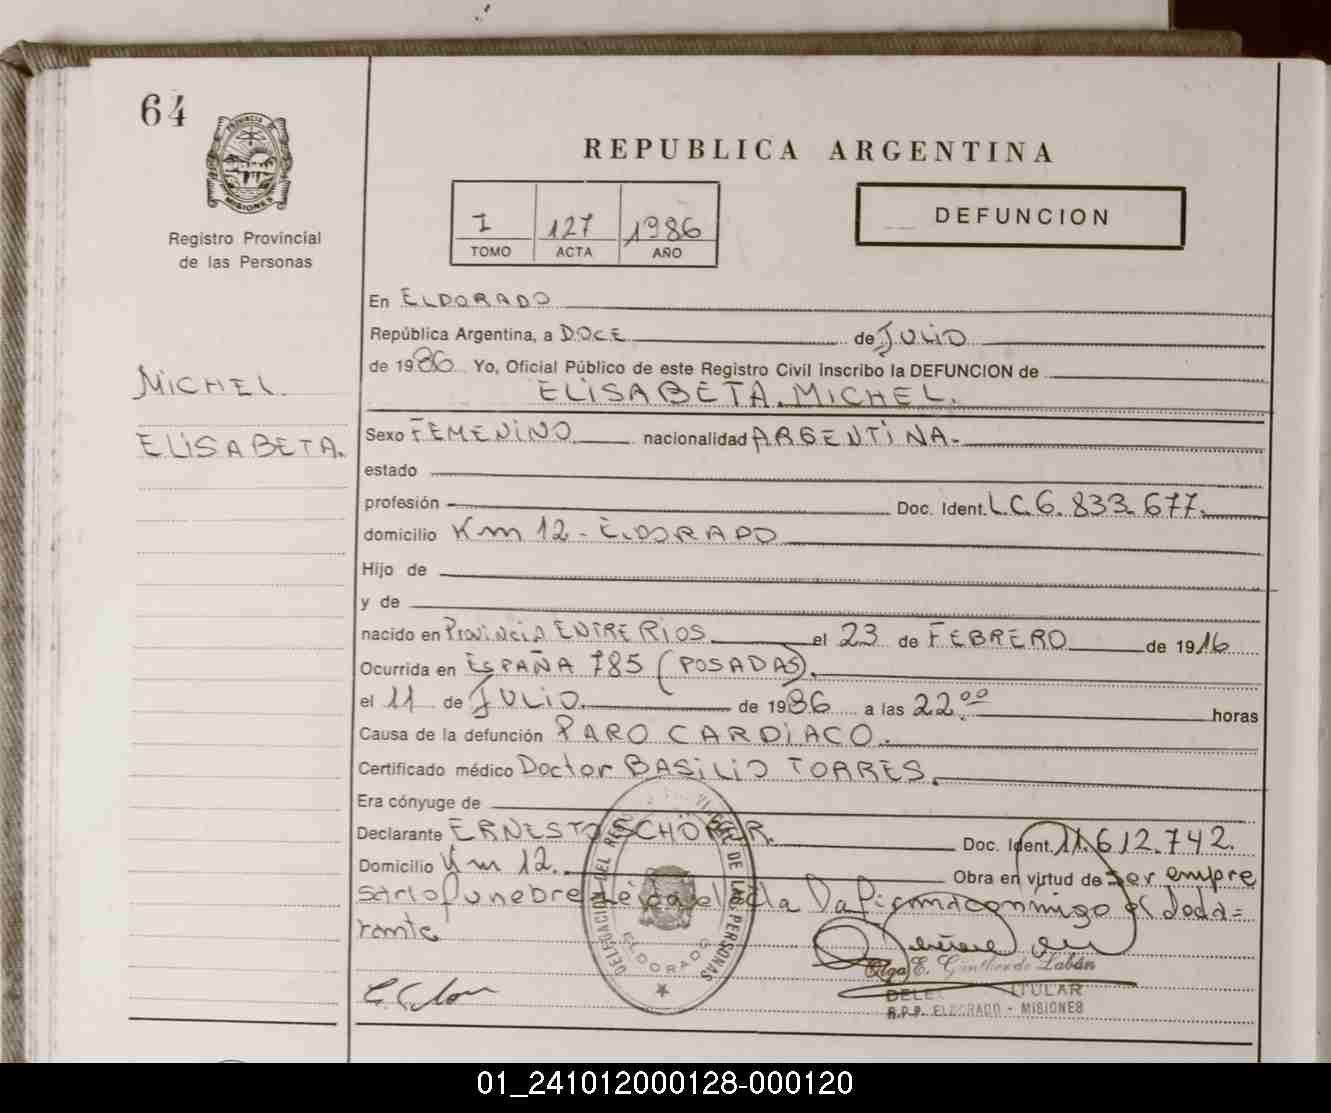 64
PROVINCIA DE
MISIONES
Registro Provincial
de las Personas
REPUBLICA ARGENTINA
I 127 1986
TOMO ACTA AÑO
DEFUNCION
En ELDORADO
República Argentina, a DOCE de JULIO
de 1986 Yo, Oficial Público de este Registro Civil inscribo la DEFUNCION de
ELISABETA. MICHEL.
MICHEL.
ELISABETA.
Sexo FEMENINO nacionalidad ARGENTINA.
estado
profesión Doc. Ident. L.C. 6.833.677.
domicilio Km 12 - ELDORADO
Hijo de
y de
nacido en Provincia ENTRE RIOS el 23 de FEBRERO de 1916
Ocurrida en ESPAÑA 785 (POSADAS).
el 11 de JULIO de 1986 a las 22.00 horas
Causa de la defunción PARO CARDIACO.
Certificado médico Doctor BASILIO TORRES.
Era cónyuge de
Declarante ERNESTO SCHÖFER. Doc. Ident. 11.612.742.
Domicilio Km 12. Obra en virtud de ser empre
sario funebre Leida el acta La firma conmigo el decla=
rante
DELEGACION DEL REG. DE LAS PERSONAS
ELDORADO
Olga E. Günther de Labán
TITULAR
R.P.P. ELDORADO - MISIONES
01_241012000128-000120